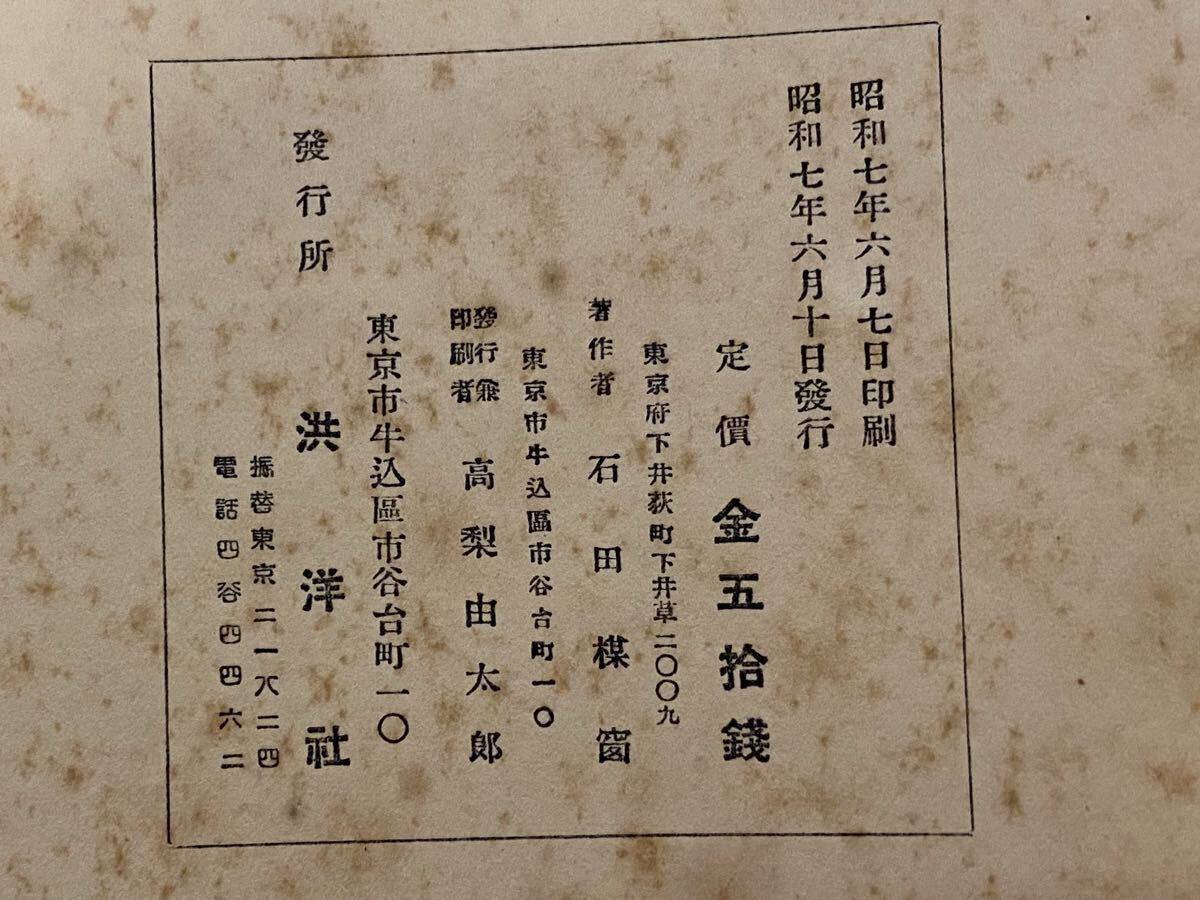 昭和七年六月七日印刷
昭和七年六月十日發行
定價 金五拾錢
東京府下井荻町下井草二〇〇九
著作者 石田楳窗
東京市牛込區市谷台町一〇
發行兼印刷者 高梨由太郎
東京市牛込區市谷台町一〇
發行所 洪洋社
振替東京二一八二四
電話四谷四四六二